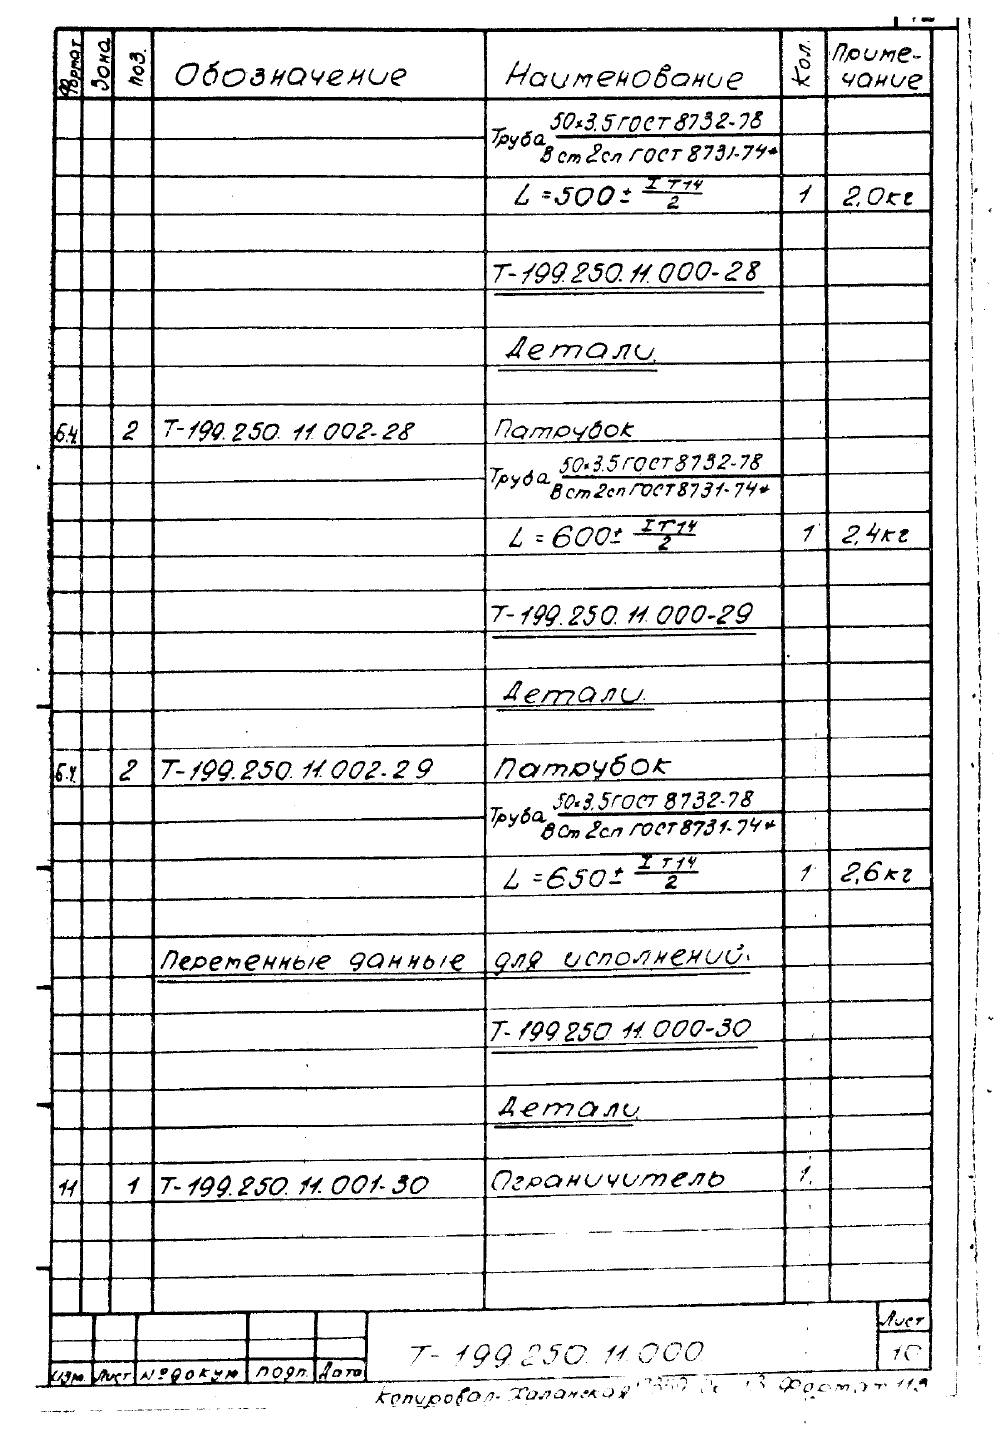 Формат Зона Поз. Обозначение Наименование Кол. Приме-
чание
Труба 50×3,5 ГОСТ 8732-78
В ст 2сп ГОСТ 8731-74*
L = 500 ± IT14/2 1 2,0кг
Т-199.250.11.000-28
Детали.
Б.Ч. 2 Т-199.250.11.002-28 Патрубок
Труба 50×3.5 ГОСТ 8732-78
В ст 2сп ГОСТ 8731-74*
L = 600 ± IT14/2 1 2,4кг
Т-199.250.11.000-29
Детали.
Б.Ч. 2 Т-199.250.11.002-29 Патрубок
Труба 50×3,5 ГОСТ 8732-78
В Ст 2сп ГОСТ 8731-74*
L = 650 ± IT14/2 1 2,6кг
Переменные данные для исполнений.
Т-199.250.11.000-30
Детали.
11 1 Т-199.250.11.001-30 Ограничитель 1
Лист
Т-199.250.11.000 10
Изм. Лист № докум Подп. Дата
Копировал- Формат 11